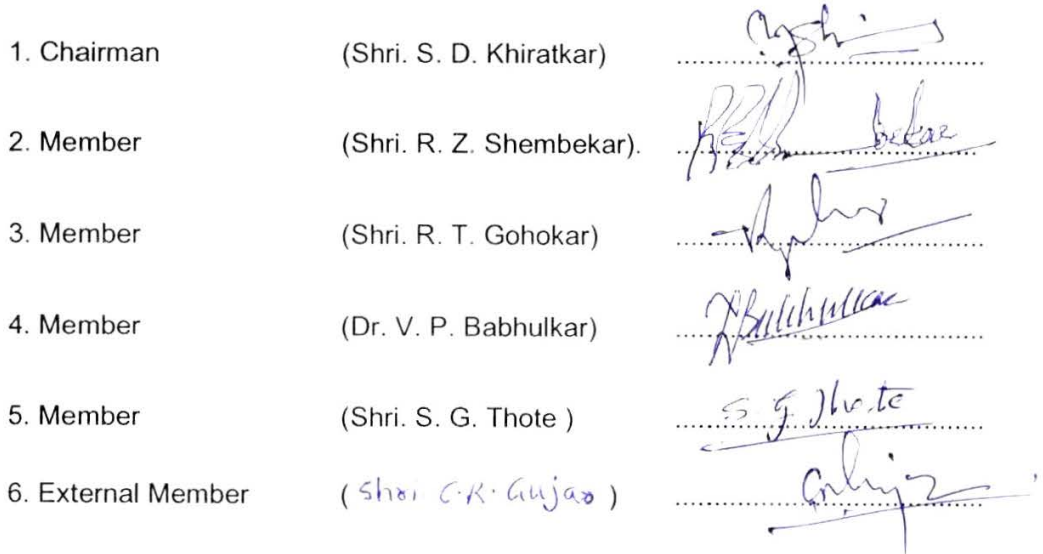 1. Chairman (Shri. S. D. Khiratkar)
2. Member (Shri. R. Z. Shembekar). bekar
3. Member (Shri. R. T. Gohokar)
4. Member (Dr. V. P. Babhulkar) Babhulkar
5. Member (Shri. S. G. Thote ) S. G. Thote
6. External Member ( Shri C.K. Gujar )